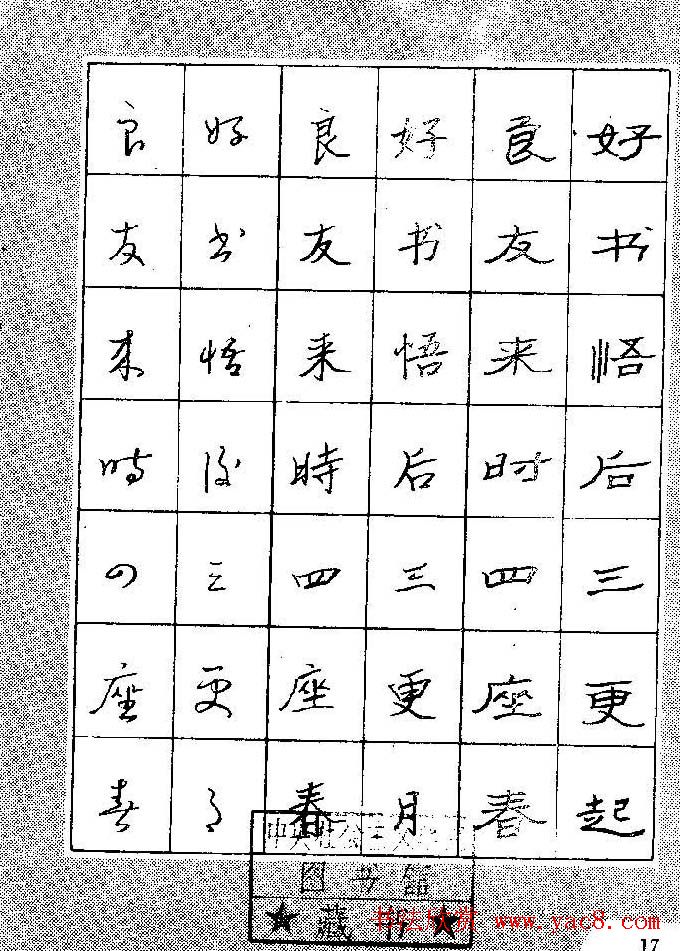 好书悟后三更起
良友来时四座春
好书悟后三更月
良友来時四座春
好书悟後三更月
良友来時四座春
图书馆
藏书
书法欣赏 www.yac8.com
17